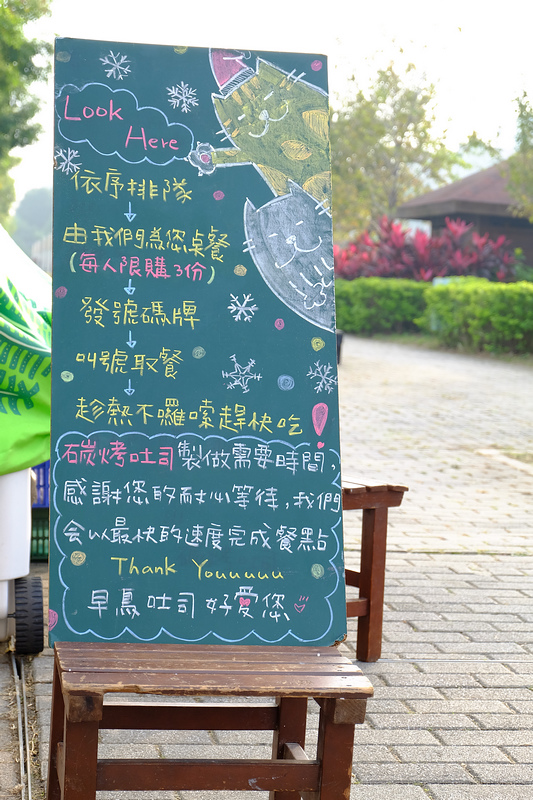 Look
Here
依序排隊
由我們為您桌餐
(每人限購3份)
發號碼牌
叫號取餐
趁熱不囉嗦趕快吃!
石炭烤吐司製做需要時間,
感謝您的耐心等待,我們
会以最快的速度完成餐點
Thank Youuuuu
早鳥吐司 好愛您